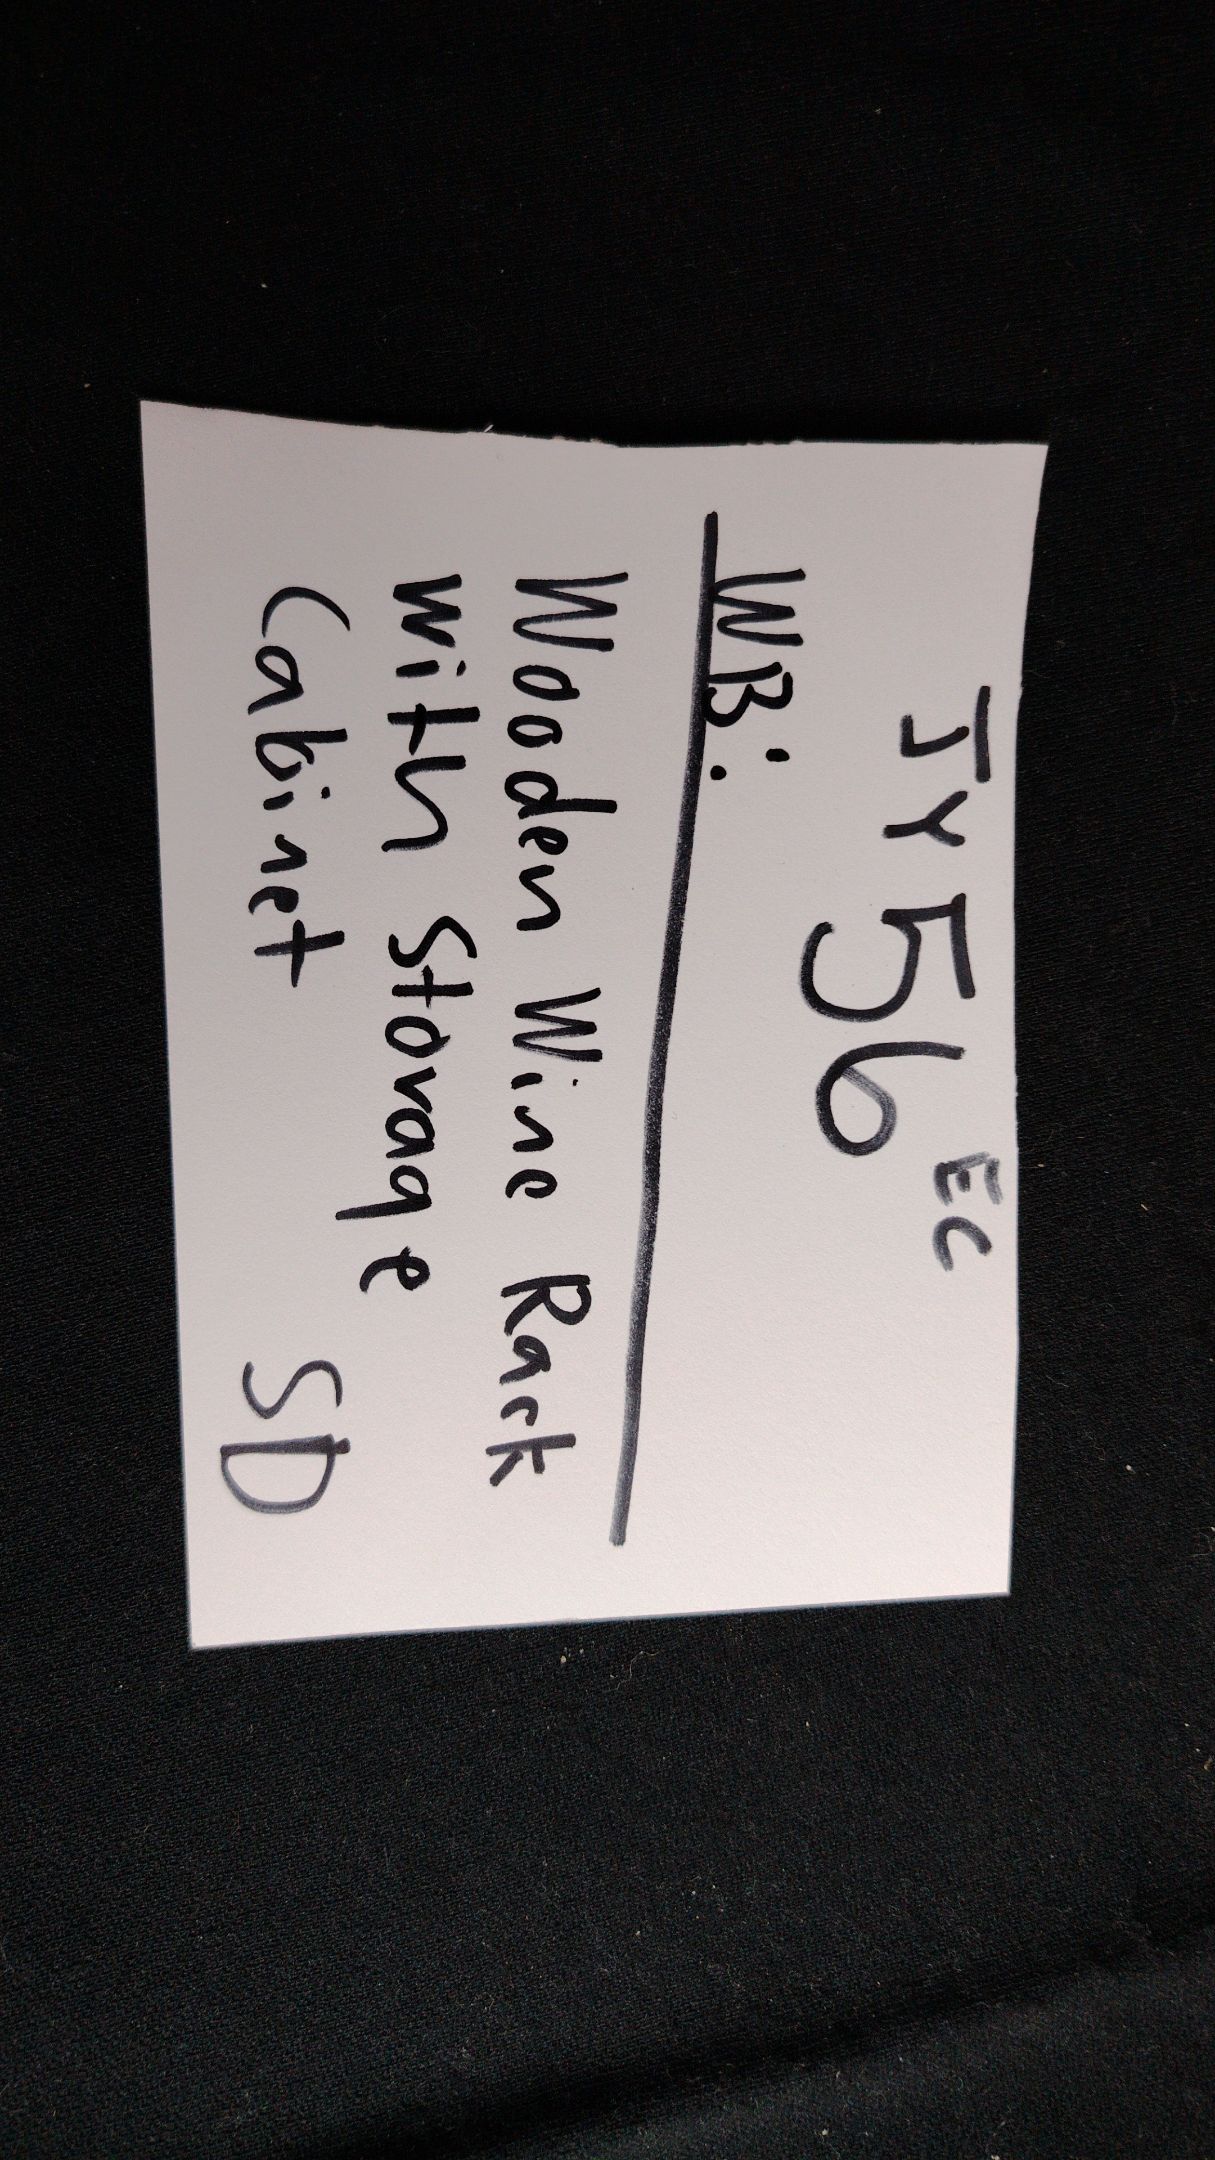 JY 56 EC
WB:
Wooden Wine Rack
with Storage
Cabinet SD